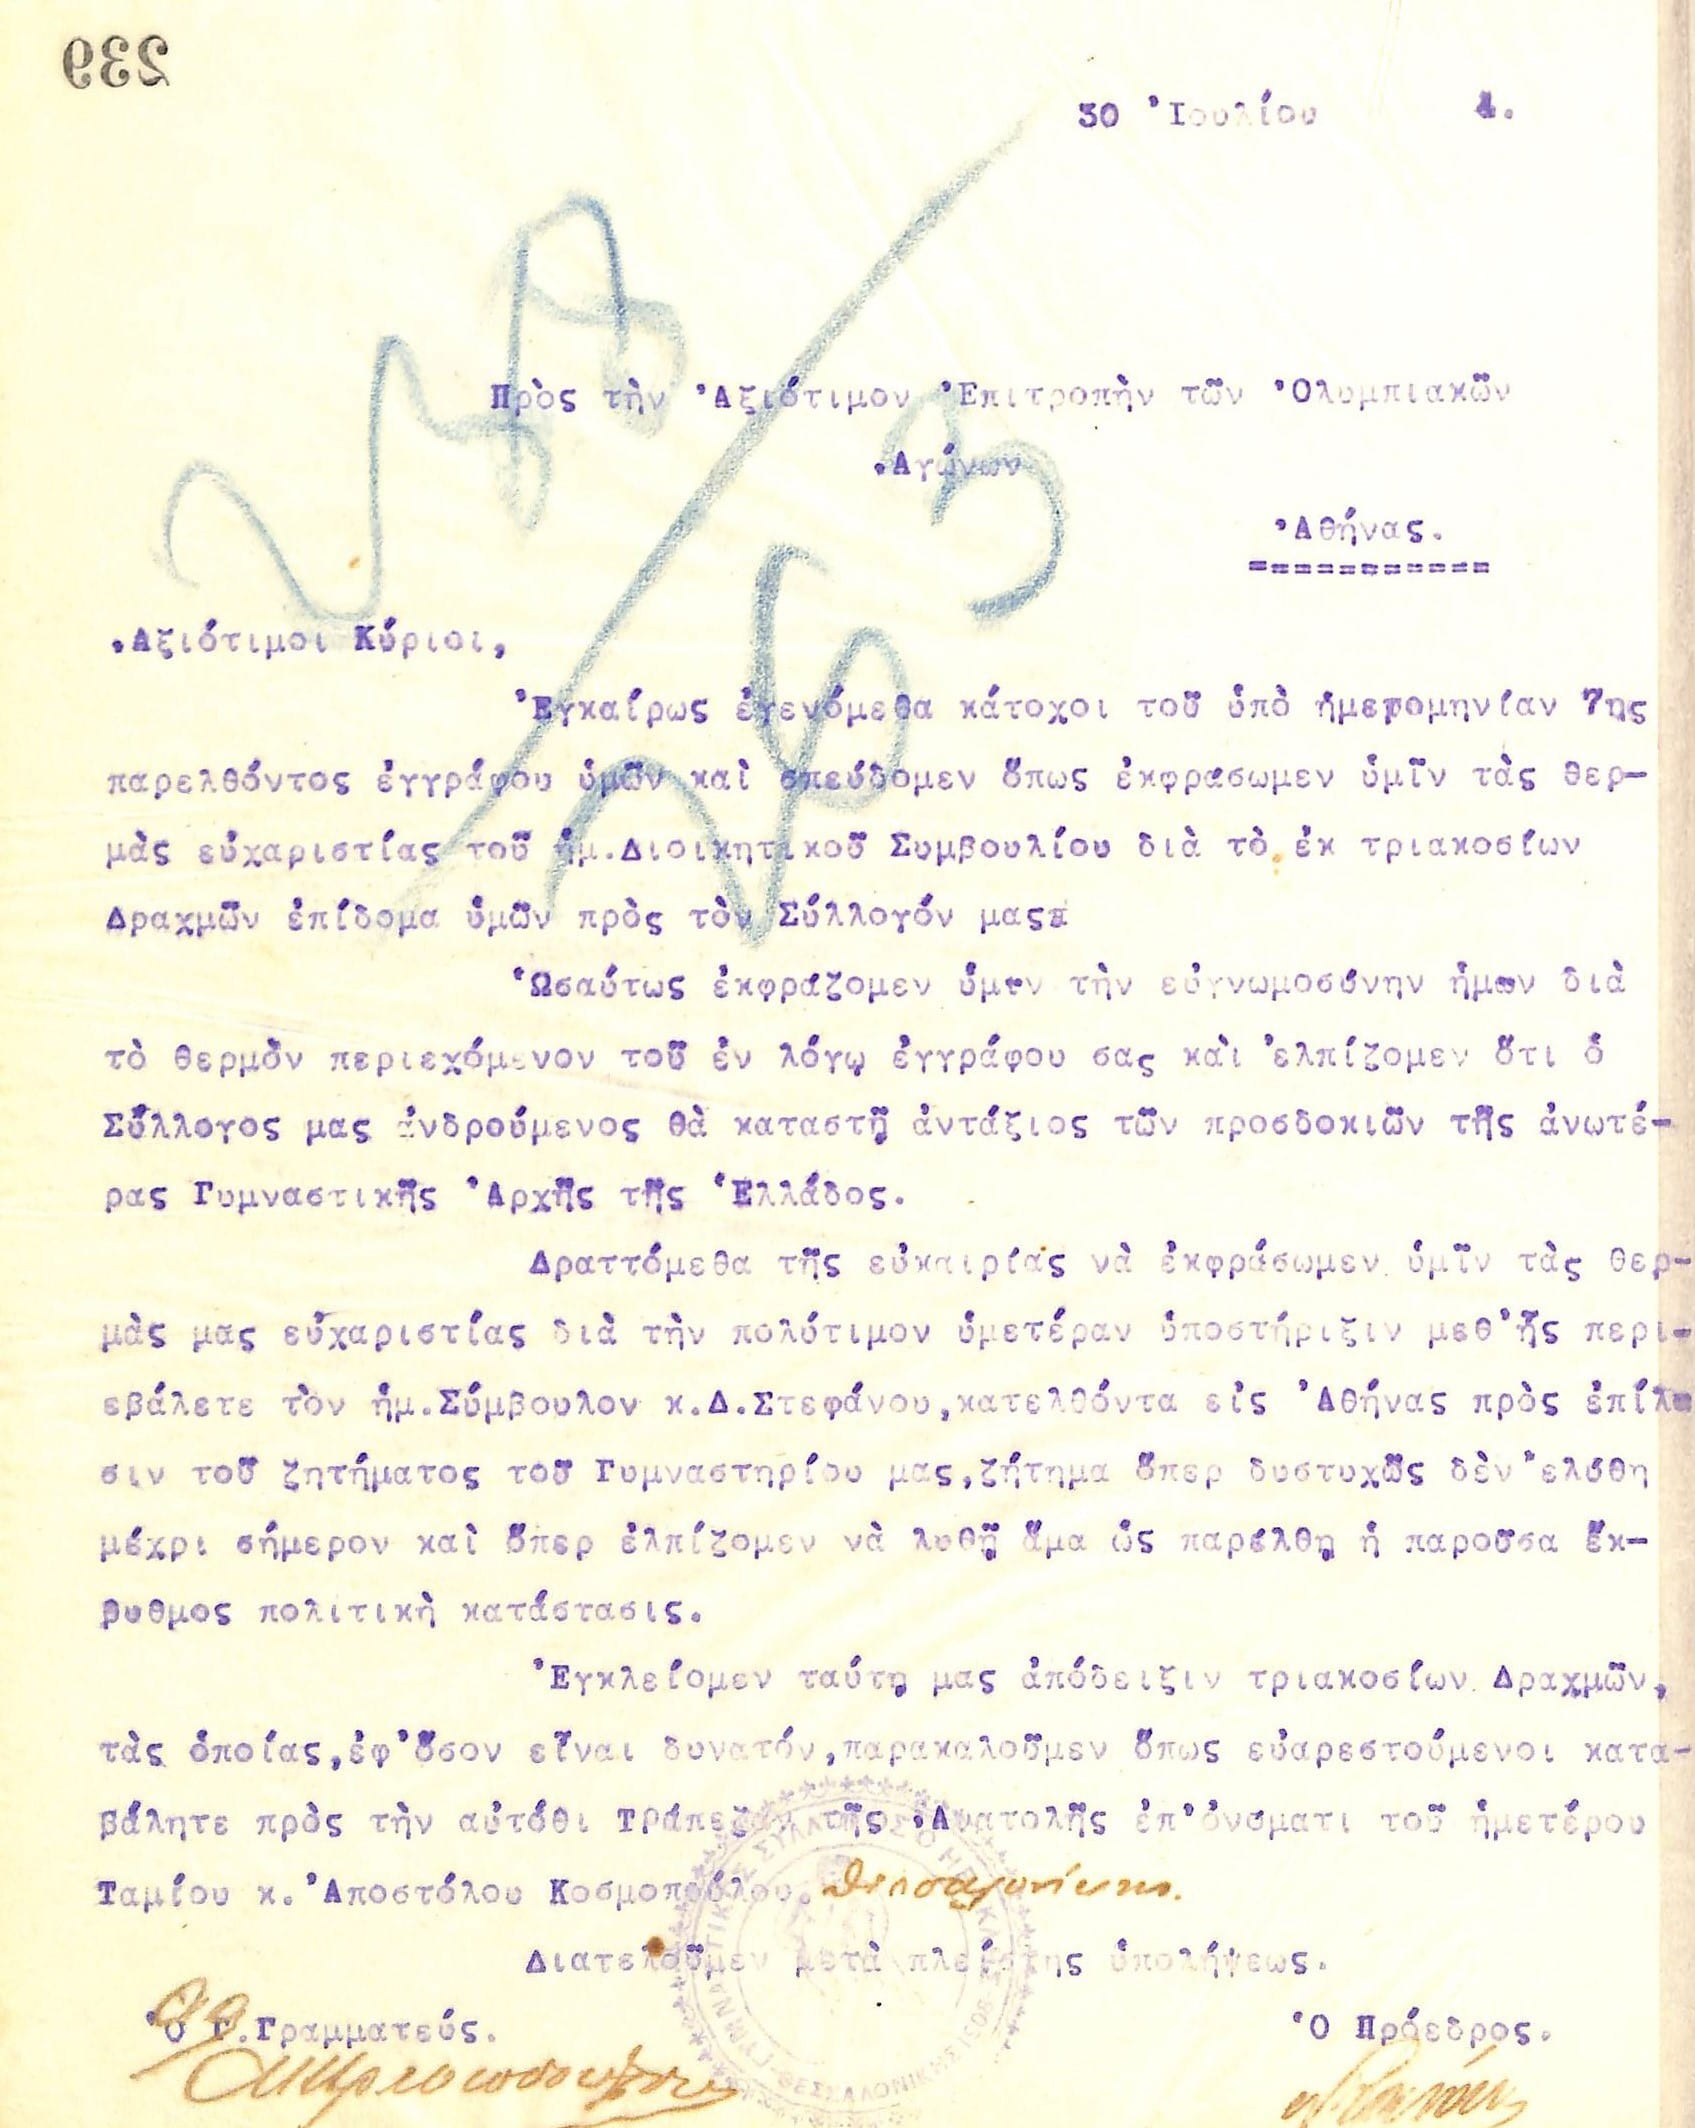 239
30 Ἰουλίου 4.
Πρὸς τὴν Ἀξιότιμον Ἐπιτροπὴν τῶν Ὀλυμπιακῶν
Ἀγώνων
Ἀθήνας.
===========
Ἀξιότιμοι Κύριοι,
Ἐγκαίρως ἐγενόμεθα κάτοχοι τοῦ ὑπὸ ἡμερομηνίαν 7ης
παρελθόντος ἐγγράφου ὑμῶν καὶ σπεύδομεν ὅπως ἐκφράσωμεν ὑμῖν τὰς θερ-
μὰς εὐχαριστίας τοῦ ἡμ.Διοικητικοῦ Συμβουλίου διὰ τὸ ἐκ τριακοσίων
Δραχμῶν ἐπίδομα ὑμῶν πρὸς τὸν Σύλλογόν μας
Ὡσαύτως ἐκφράζομεν ὑμῖν τὴν εὐγνωμοσύνην ἡμῶν διὰ
τὸ θερμὸν περιεχόμενον τοῦ ἐν λόγῳ ἐγγράφου σας καὶ ἐλπίζομεν ὅτι ὁ
Σύλλογος μας ἀνδρούμενος θὰ καταστῇ ἀντάξιος τῶν προσδοκιῶν τῆς ἀνωτέ-
ρας Γυμναστικῆς Ἀρχῆς τῆς Ἑλλάδος.
Δραττόμεθα τῆς εὐκαιρίας νὰ ἐκφράσωμεν ὑμῖν τὰς θερ-
μὰς μας εὐχαριστίας διὰ τὴν πολύτιμον ὑμετέραν ὑποστήριξιν μεθ'ἧς περι-
εβάλετε τὸν ἡμ.Σύμβουλον κ.Δ.Στεφάνου,κατελθόντα εἰς Ἀθήνας πρὸς ἐπίλυ
σιν τοῦ ζητήματος τοῦ Γυμναστηρίου μας,ζήτημα ὅπερ δυστυχῶς δὲν ἐλύθη
μέχρι σήμερον καὶ ὅπερ ἐλπίζομεν νὰ λυθῇ ἅμα ὡς παρέλθῃ ἡ παροῦσα ἔκ-
ρυθμος πολιτικὴ κατάστασις.
Ἐγκλείομεν ταύτῃ μας ἀπόδειξιν τριακοσίων Δραχμῶν,
τὰς ὁποίας,ἐφ'ὅσον εἶναι δυνατόν,παρακαλοῦμεν ὅπως εὐαρεστούμενοι κατα-
βάλητε πρὸς τὴν αὐτόθι Τράπεζαν τῆς Ἀνατολῆς ἐπ'ὀνόματι τοῦ ἡμετέρου
Ταμίου κ. Ἀποστόλου Κοσμοπούλου. Θεσσαλονίκην.
Διατελοῦμεν μετὰ πλείστης ὑπολήψεως.
Ὁ Γ.Γραμματεύς. Ὁ Πρόεδρος.
ΓΥΜΝΑΣΤΙΚΟΣ ΣΥΛΛΟΓΟΣ Ο ΗΡΑΚΛΗΣ 1908 ΘΕΣΣΑΛΟΝΙΚΗΣ